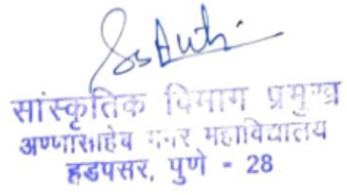 सांस्कृतिक विभाग प्रमुख
अण्णासाहेब मगर महाविद्यालय
हडपसर, पुणे - 28